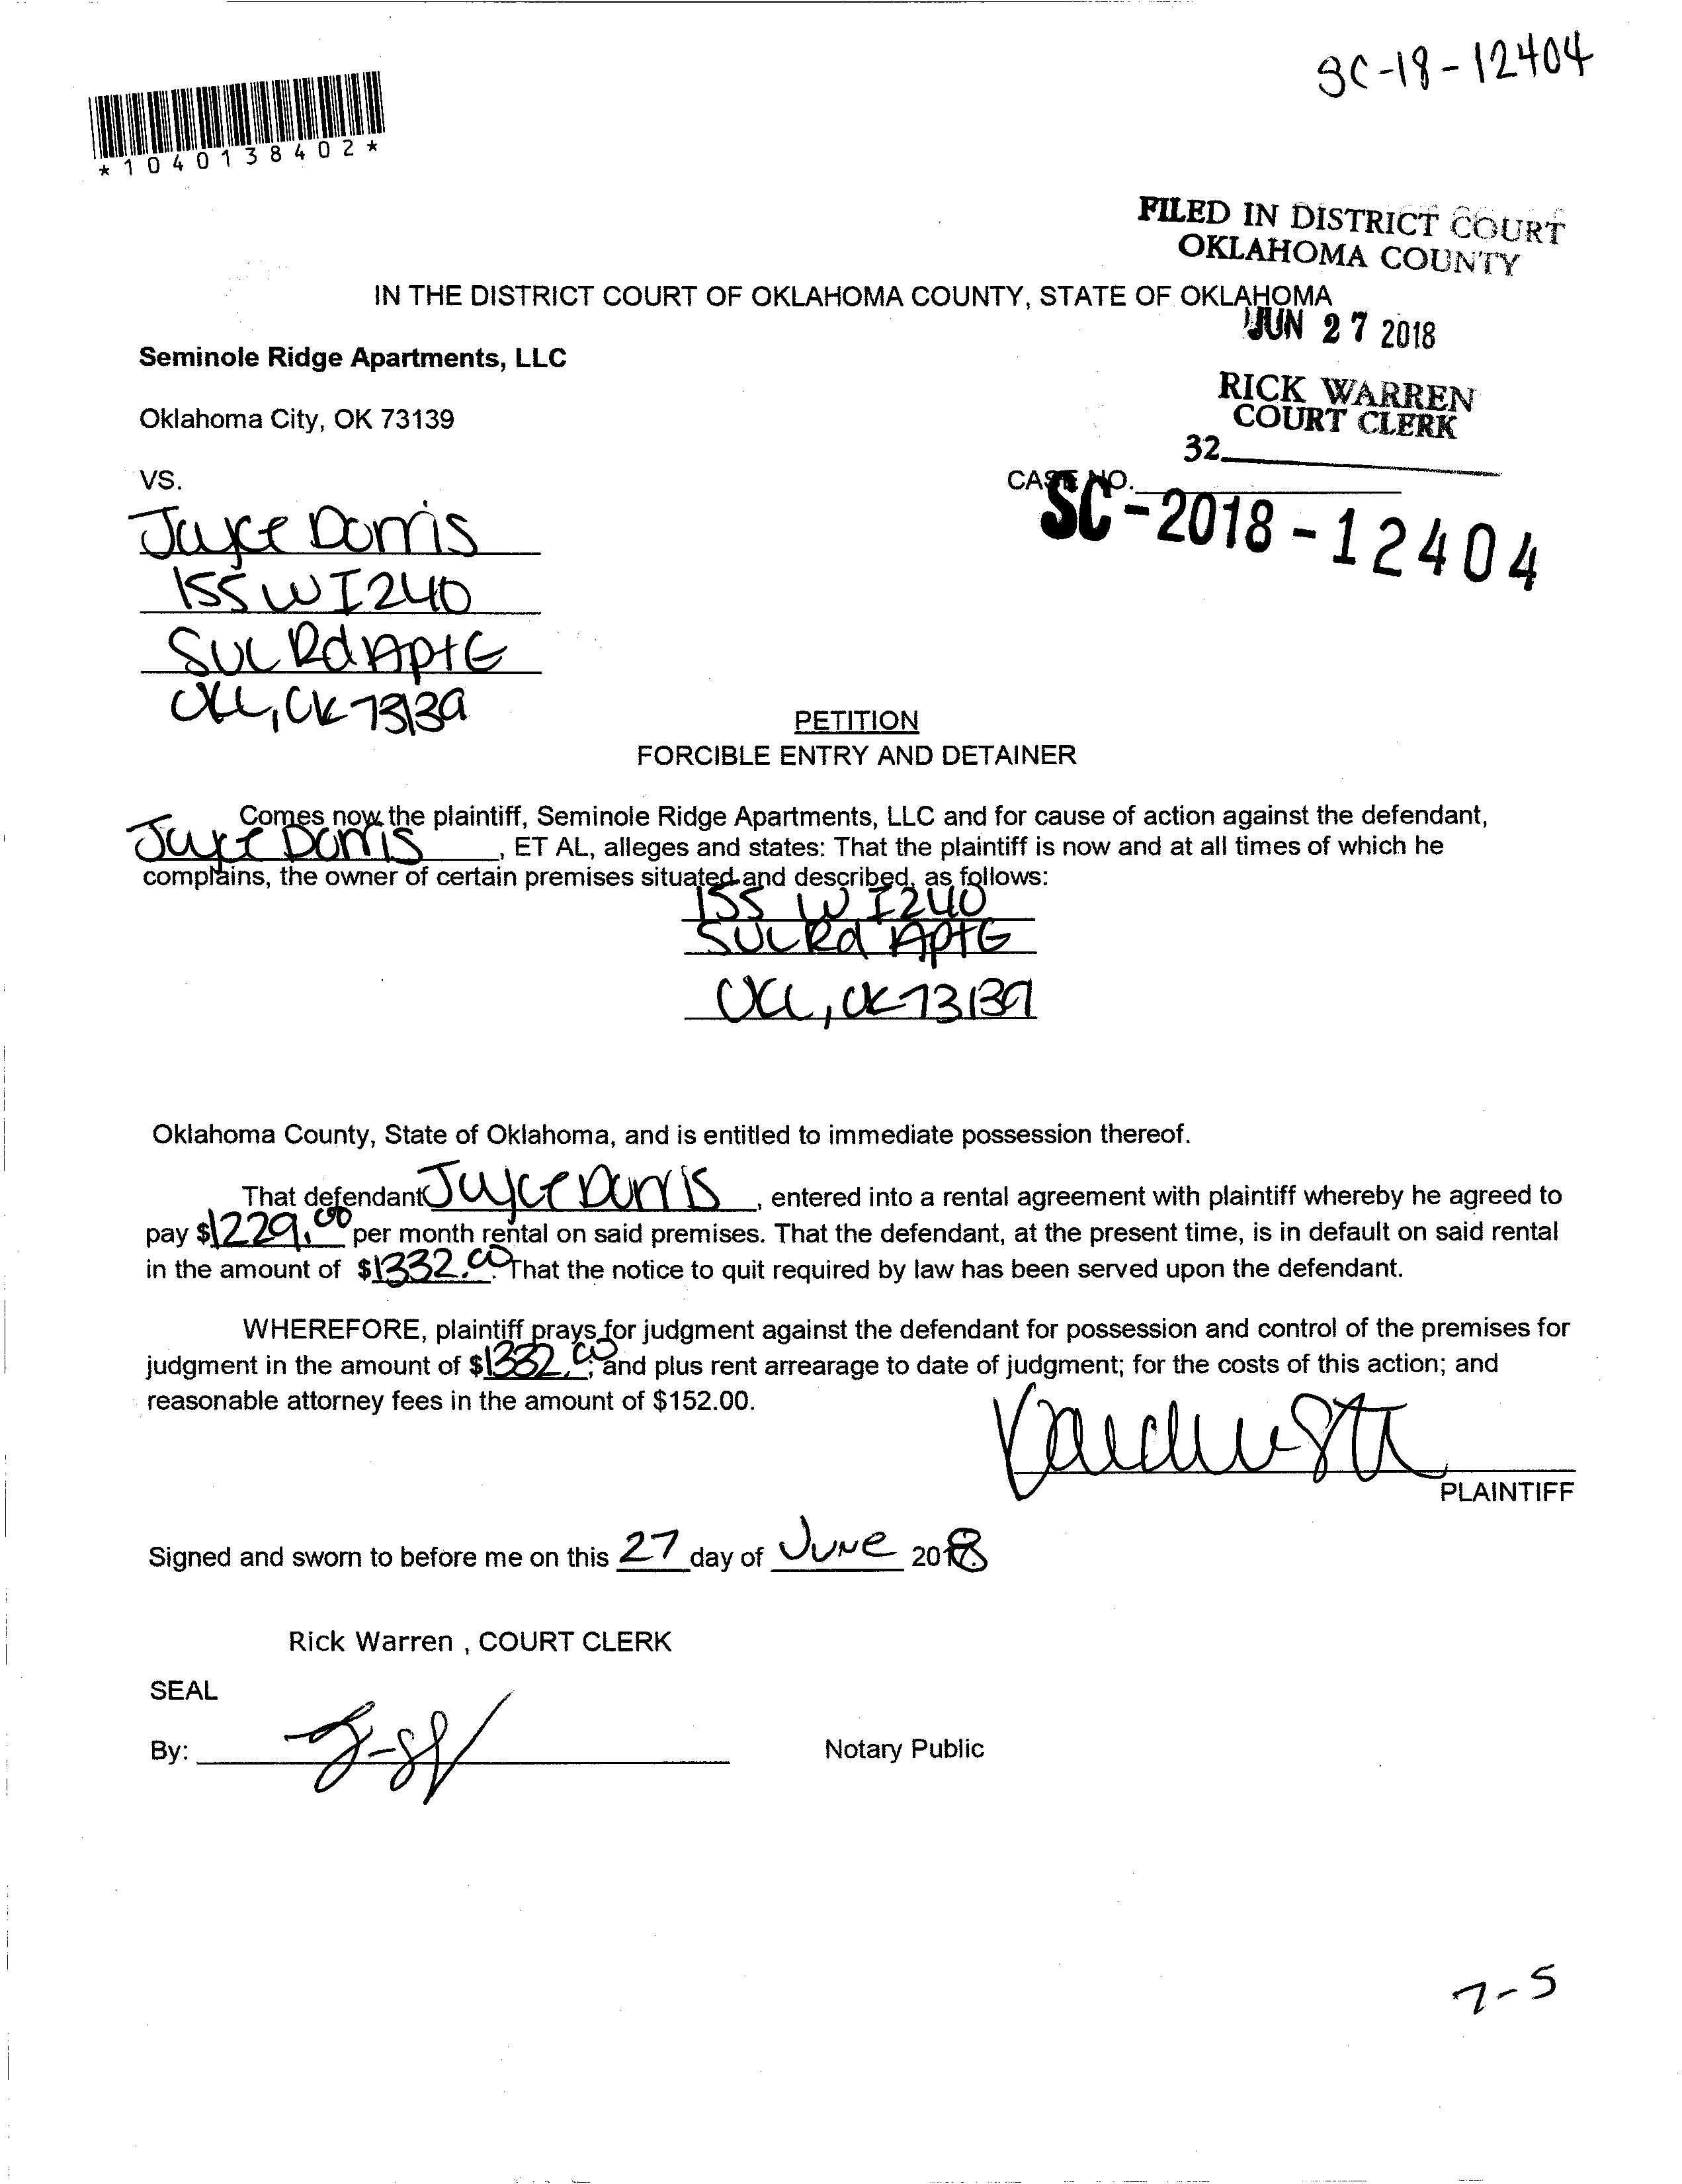 SC-18-12404
*1040138402*
FILED IN DISTRICT COURT
OKLAHOMA COUNTY
IN THE DISTRICT COURT OF OKLAHOMA COUNTY, STATE OF OKLAHOMA
JUN 27 2018
Seminole Ridge Apartments, LLC
RICK WARREN
COURT CLERK
Oklahoma City, OK 73139
32
VS.
CASE NO.
SC-2018-12404
Joyce Dorris
155 W I240
SVC Rd Apt G
OKC, OK 73139
PETITION
FORCIBLE ENTRY AND DETAINER
Comes now the plaintiff, Seminole Ridge Apartments, LLC and for cause of action against the defendant,
Joyce Dorris, ET AL, alleges and states: That the plaintiff is now and at all times of which he
complains, the owner of certain premises situated and described, as follows:
155 W I240
SVC Rd Apt G
OKC, OK 73139
Oklahoma County, State of Oklahoma, and is entitled to immediate possession thereof.
That defendant Joyce Dorris, entered into a rental agreement with plaintiff whereby he agreed to
pay $1229.00 per month rental on said premises. That the defendant, at the present time, is in default on said rental
in the amount of $1332.00. That the notice to quit required by law has been served upon the defendant.
WHEREFORE, plaintiff prays for judgment against the defendant for possession and control of the premises for
judgment in the amount of $1332.00; and plus rent arrearage to date of judgment; for the costs of this action; and
reasonable attorney fees in the amount of $152.00.
PLAINTIFF
Signed and sworn to before me on this 27 day of June 2018
Rick Warren , COURT CLERK
SEAL
By:
Notary Public
7-5